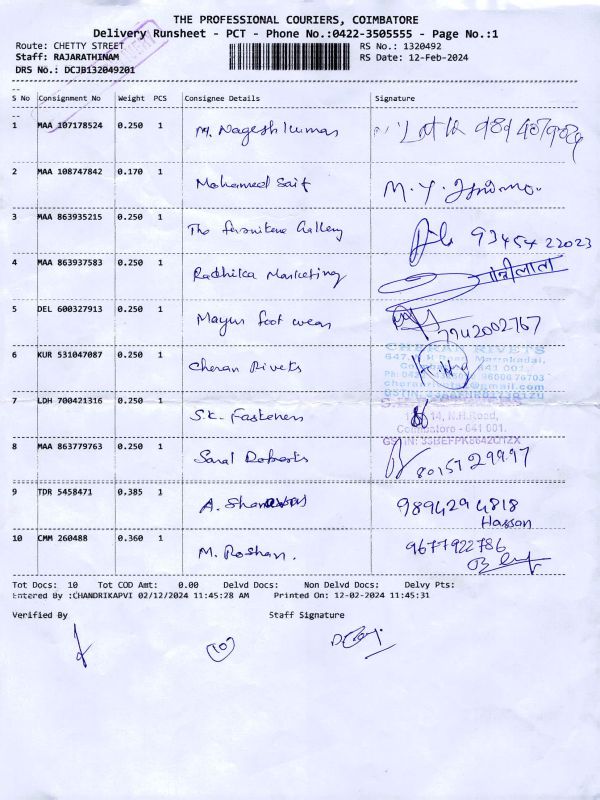 THE PROFESSIONAL COURIERS, COIMBATORE
Delivery Runsheet - PCT - Phone No.:0422-3505555 - Page No.:1
Route: CHETTY STREET
RS No.: 1320492
Staff: RAJARATHINAM
RS Date: 12-Feb-2024
DRS No.: DCJB132049201
S No Consignment No Weight PCS Consignee Details Signature
1 MAA 107178524 0.250 1 M. Nagesh Kumar
2 MAA 108747842 0.170 1 Mohamed Saif M. Y.
3 MAA 863935215 0.250 1 The Gallery 93454 22023
4 MAA 863937583 0.250 1 Radhika Marketing
5 DEL 600327913 0.250 1 Mayur foot wear 7942002767
6 KUR 531047087 0.250 1 Cheran Rivets
CHERAN RIVETS
7 LDH 700421316 0.250 1 S.K. Fasteners
14, N.H.Road,
Coimbatore - 641 001.
8 MAA 863779763 0.250 1 Saral Roberts 8015729997
9 TDR 5458471 0.385 1 A. 9894294818
Hasson
10 CMM 260488 0.360 1 M. Roshan. 9677922786
Tot Docs: 10 Tot COD Amt: 0.00 Delvd Docs: Non Delvd Docs: Delvy Pts:
Entered By :CHANDRIKAPVI 02/12/2024 11:45:28 AM Printed On: 12-02-2024 11:45:31
Verified By Staff Signature
10